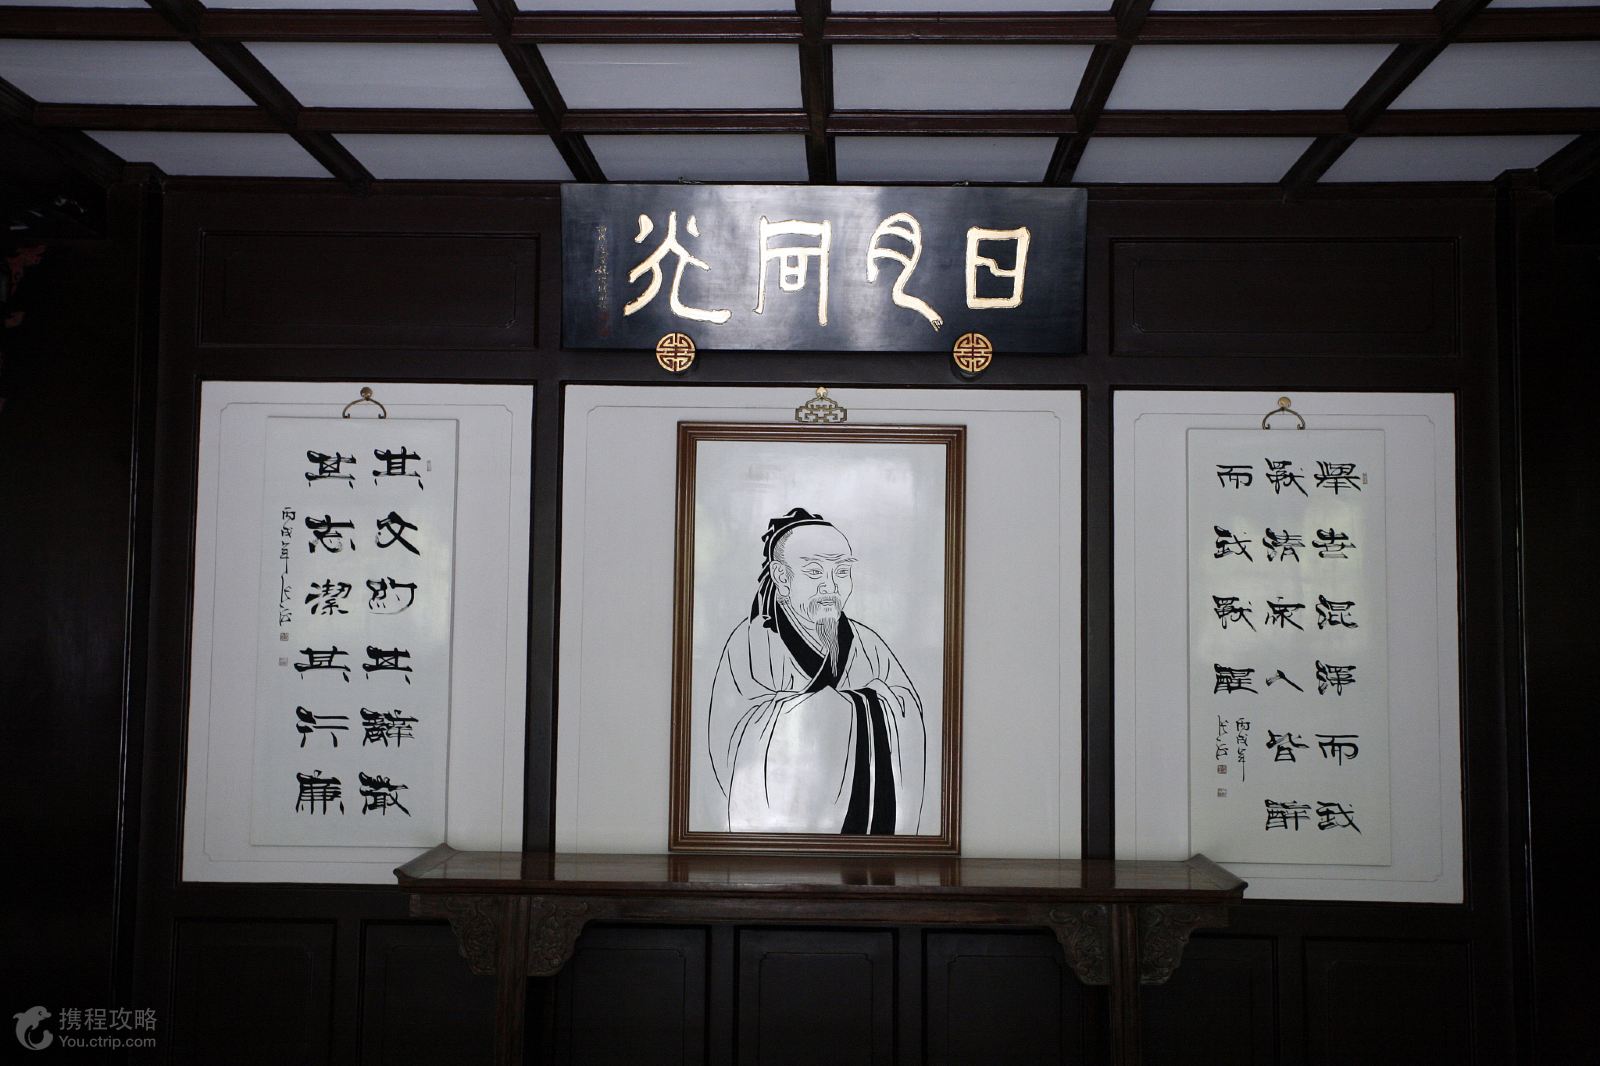 日月同光
舉世混濁而我
獨清衆人皆醉
而我獨醒
丙戌年
其文約其辭微
其志潔其行廉
丙戌年
携程攻略
You.ctrip.com